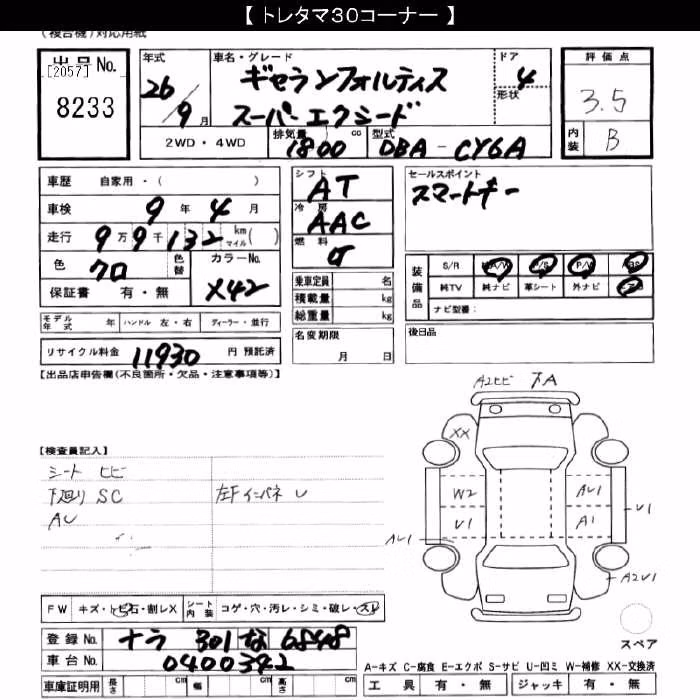 【 トレタマ30コーナー 】
(複合機)対応用紙
出品No.
[2057]
8233
年式
26/9月
車名・グレード
ギャランフォルティス
スーパーエクシード
ドア
4
形状
評価点
3.5
内装
B
2WD・4WD
排気量
1800 cc
型式
DBA-CY6A
車歴 自家用・( )
車検 9年 4月
走行 9万9千132 km マイル( )
色 クロ
色替
カラーNo.
X42
保証書 有・無
シフト
AT
冷房
AAC
燃料
乗車定員 名
積載量 kg
総重量 kg
セールスポイント
スマートキー
装備品
S/R A/W P/S P/W ABS
純TV 純ナビ 革シート 外ナビ
ナビ型番:
モデル年式 年 ハンドル 左・右 ディーラー・並行
名変期限
月 日
後日品
リサイクル料金 11930 円 預託済
【出品店申告欄(不良箇所・欠品・注意事項等)】
A2ヒビ 下A
XX
W2
U1
AU1
AU1
A1
U1
A2U1
【検査員記入】
シート ヒビ
下廻り SC
AU
左F インパネ U
FW キズ・ヒビ石・割レX
シート内装 コゲ・穴・汚レ・シミ・破レ・スレ
登録No. ナラ 301 な 6848
車台No. 0400342
スペア
A-キズ C-腐食 E-エクボ S-サビ U-凹ミ W-補修 XX-交換済
車庫証明用 長さ cm 幅 cm 高さ cm
工具 有・無 ジャッキ 有・無